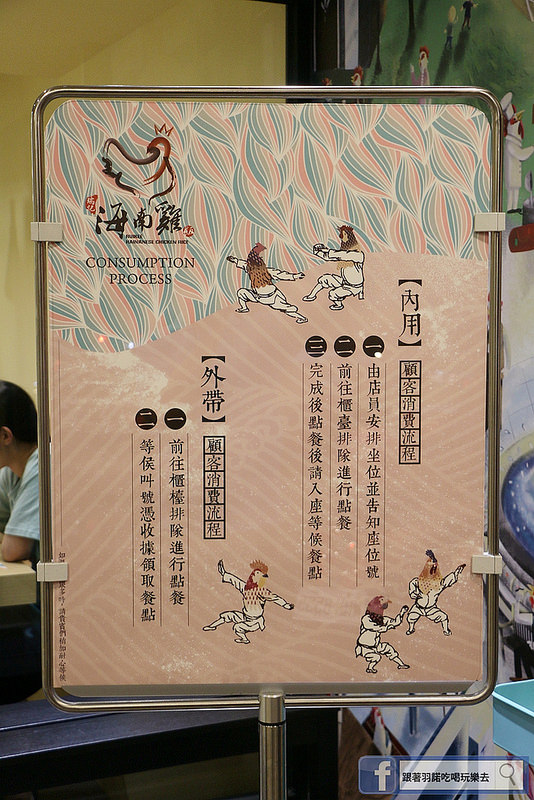 海南雞飯
HAINANESE CHICKEN RICE
CONSUMPTION
PROCESS
【內用】
顧客消費流程
一 由店員安排坐位並告知座位號
二 前往櫃臺排隊進行點餐
三 完成後點餐後請入座等候餐點
【外帶】
顧客消費流程
一 前往櫃檯排隊進行點餐
二 等侯叫號憑收據領取餐點
多時，請貴賓們稍加耐心等候
跟著羽諾吃喝玩樂去